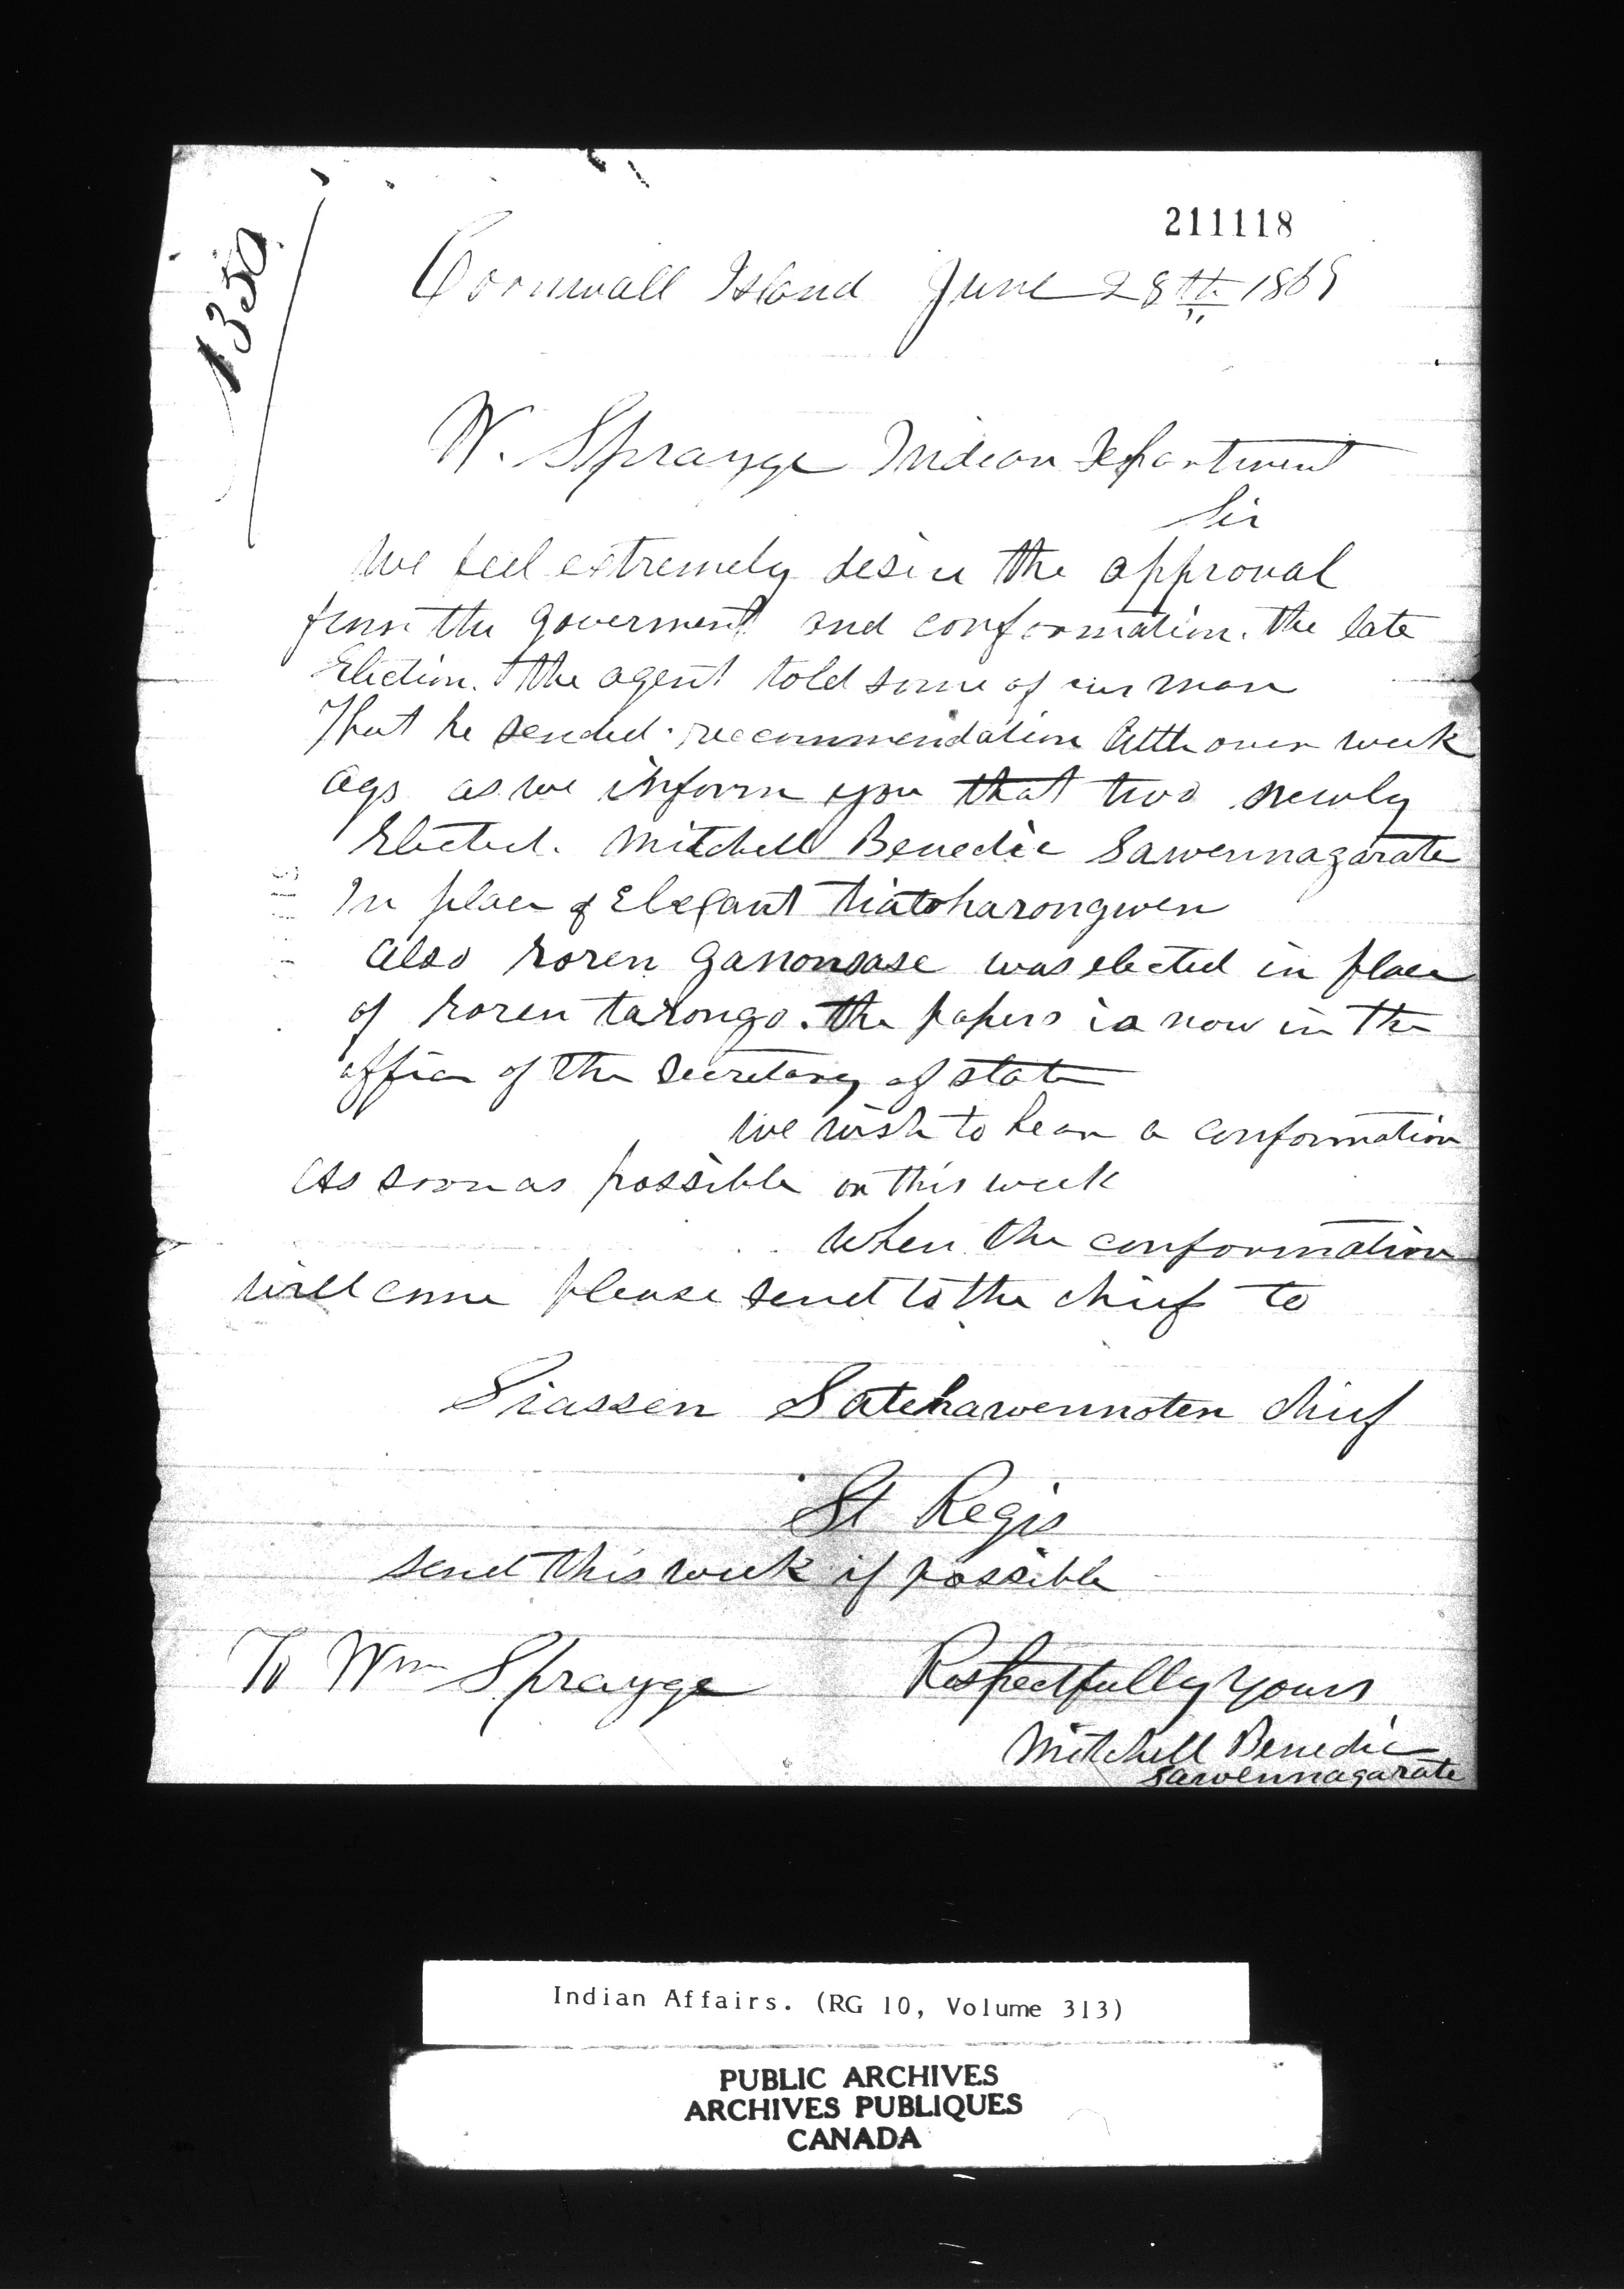 1350
211118
Cornwall Island June 28th 1869
W. Sprayge Indian Department
Sir
We feel extremely desire the approval
from the goverment and conformation. the late
Election. the agent told some of our man
That he sended recommendation little over week
ago as we inform you that two newly
Elected. Mitchell Benedic Sawennagarate
In place of Elegant tiatoharongwen
also roren ganonsase was elected in place
of roren tarongo. the papers is now in the
office of the secretary of state
we wish to hear a conformation
As soon as possible on this week
when the conformation
will come please send to the chief to
Siassen Satehawennoten chief
St Regis
send this week if possible
To Wm Sprayge Respectfully yours
Mitchell Benedic
Sawennagarate
Indian Affairs. (RG 10, Volume 313)
PUBLIC ARCHIVES
ARCHIVES PUBLIQUES
CANADA